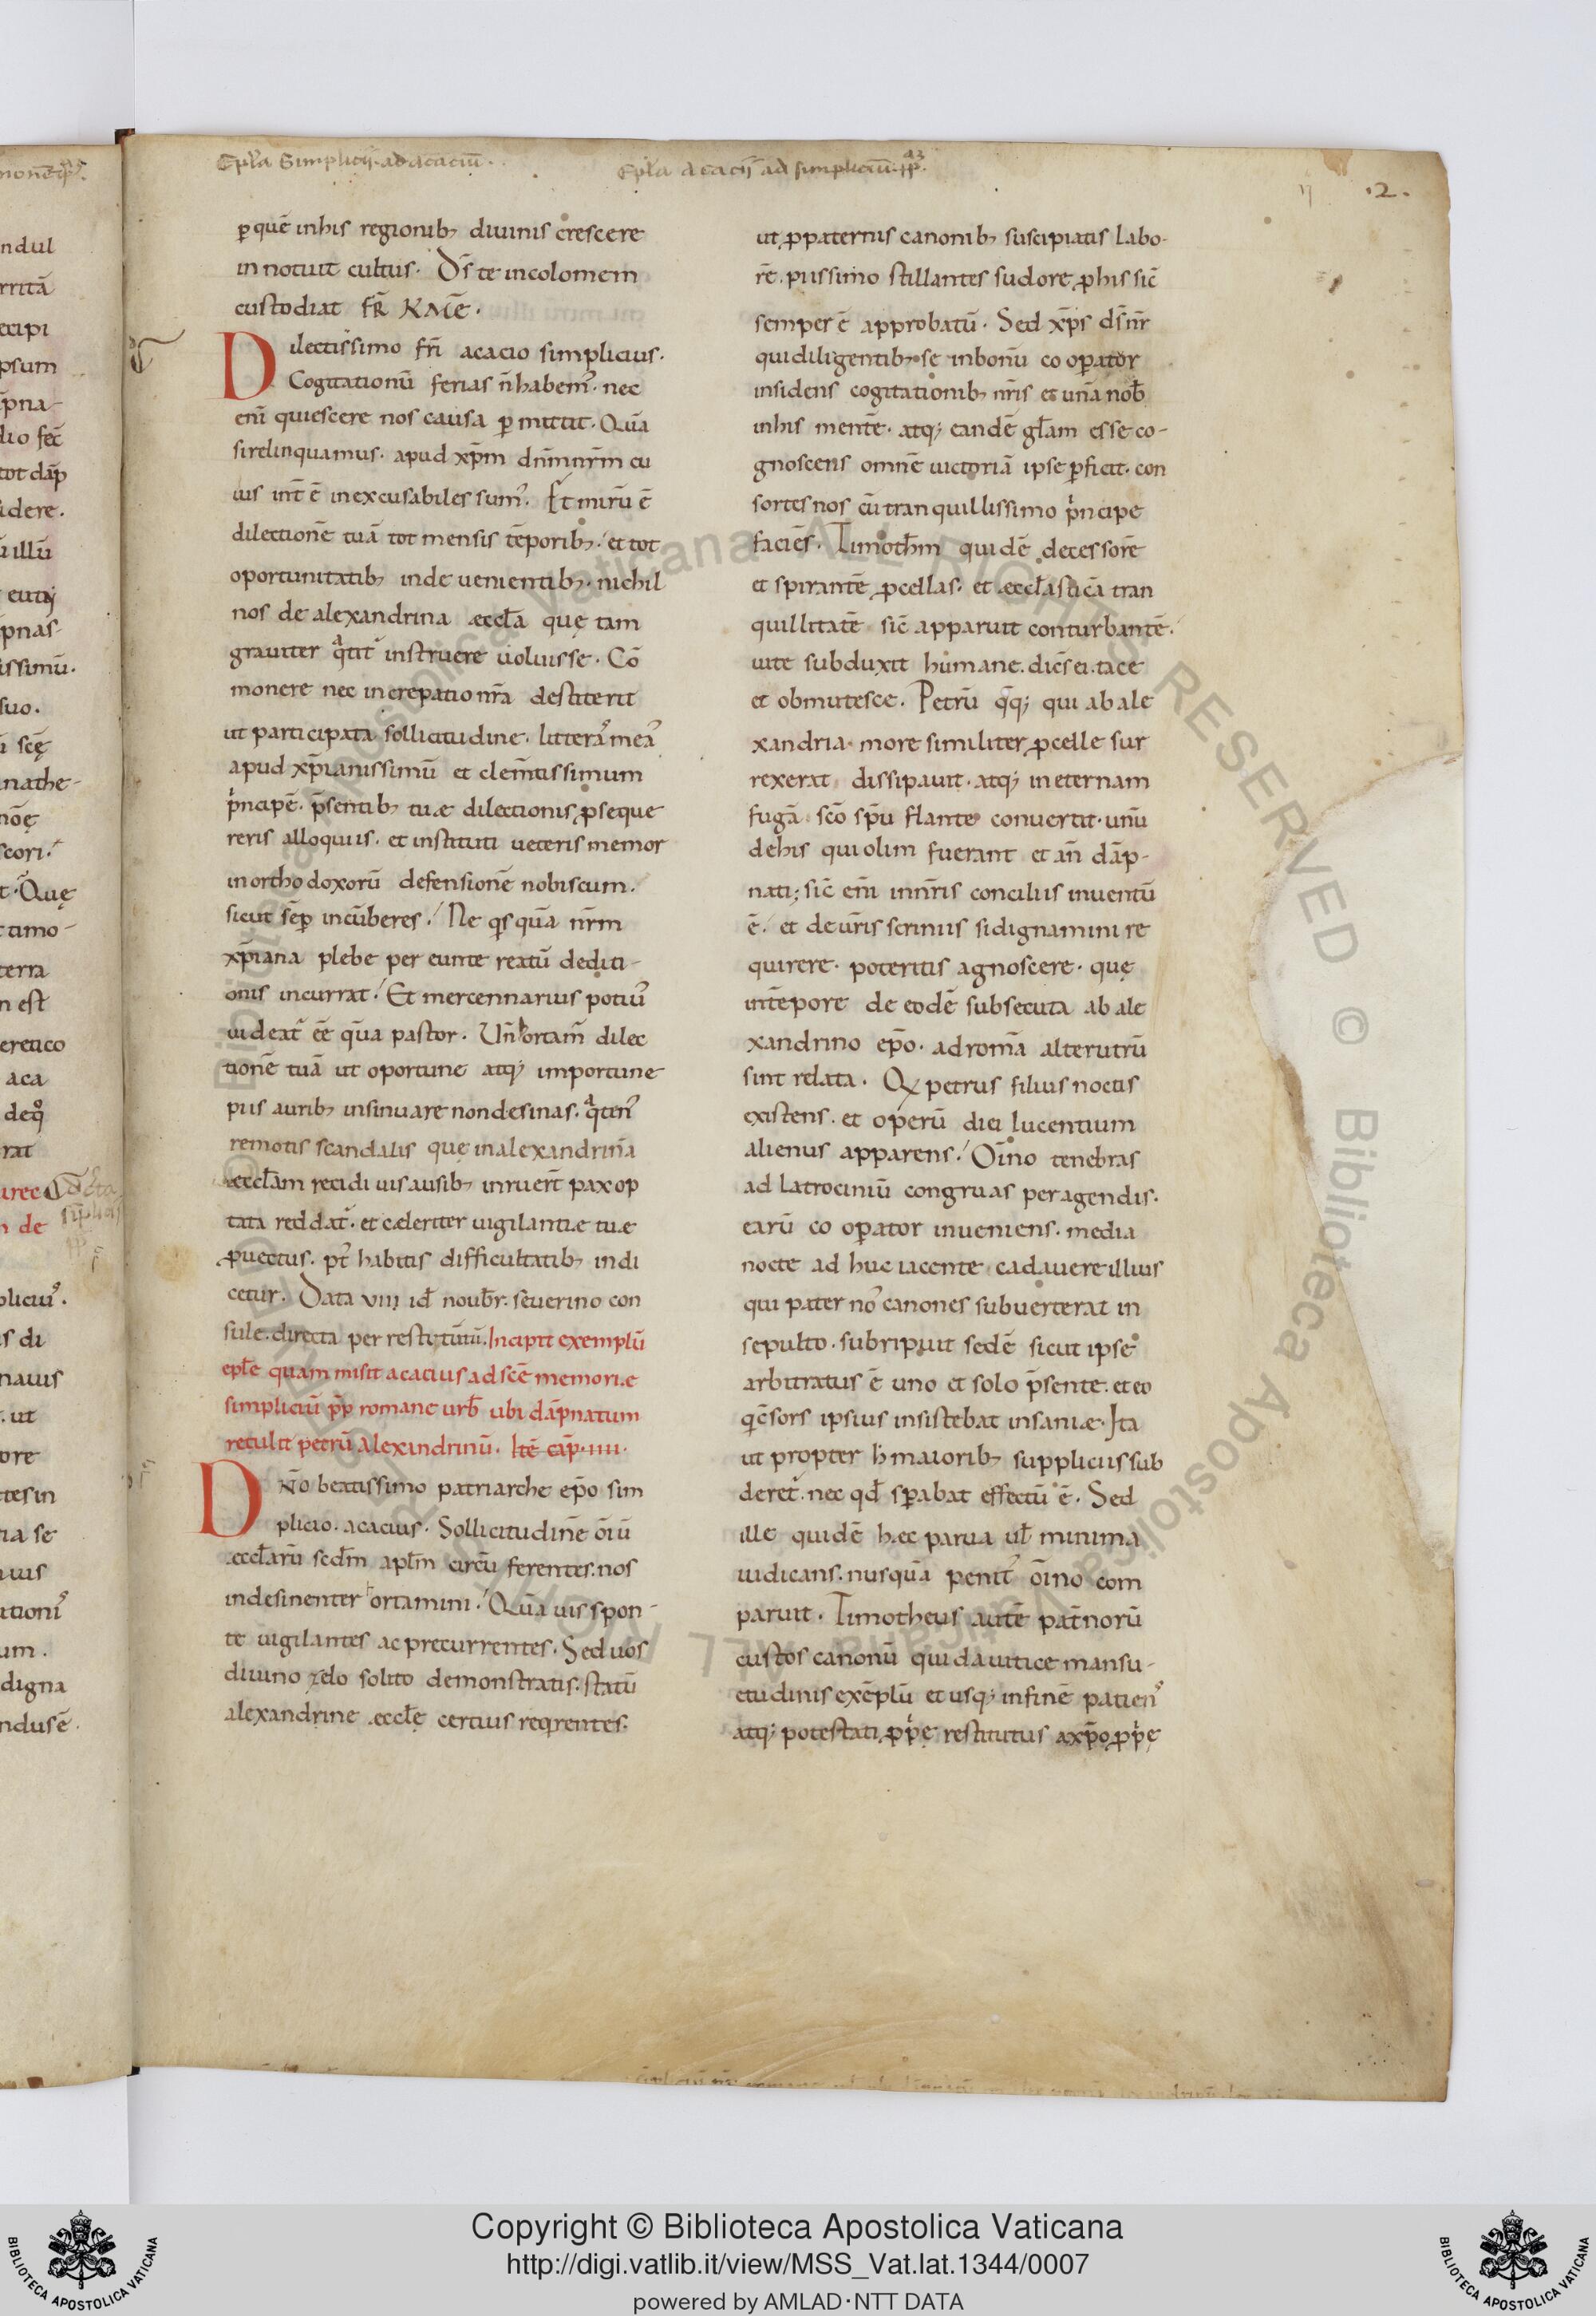 Epl̃a Simplicij. ad acaciũ.
Epl̃a acacij ad simpliciũ. pp̃.
.2.
ꝑ quẽ inhis regionib; diuinis crescere
in notuit cultus. Ds̃ te incolomem
custodiat fr̃ kmẽ.
Dilectissimo fr̃i acacio simplicius.
Cogitationũ ferias ñ habem᾽. nec
eni᷉ quiescere nos causa ꝑ mittit. Quã
si relinquamus. apud xp̃m dnm̃ nr̃m cu
ius int̃ ẽ inexcusabiles sum᾽. Et mirũ ẽ
dilectionẽ tuã tot mensis tẽporib;. et tot
oportunitatib; inde uenientib;. nichil
nos de alexandrina æccl̃a quę tam
grauiter q̃tit᷑ instruere uoluisse. Cõ
monere nec increpatio nr̃a destiterit
ut participata sollicitudine. littera᾽ mea᾽
apud xp̃ianissimũ et clem̃tissimum
p̃ncipẽ. p̃sentib; tuæ dilectionis ꝓseque
reris alloquiis. et instituti ueteris memor
in orthodoxorũ defensionẽ nobiscum.
sicut sẽꝑ incũberes. Ne qis quã nr̃m
xp̃iana plebe per eunte reatũ dediti-
onis incurrat. Et mercennarius potiu᾽
uideat᷑ eẽ quã pastor. Uñ hortam̃ dilec
tionẽ tuã ut oportune atq; importune
piis aurib; insinuare non desinas. q̃ten᾽
remotis scandalis quę in alexandrinã
æccl̃am recidiuis ausib; inruer̃t pax op
tata reddat᷑. et cæleriter uigilantiæ tuæ
ꝓuectus. pt̃ habitis difficultatib; indi
cetur. Data viii id̃ noub̃r. seuerino con
sule. directa per restitutũ. Incipit exemplũ
epl̃e quam misit acacius ad scẽ memoriæ
simpliciũ pp̃ romane urb̃ ubi dãpnatum
retulit petrũ alexindrinũ. Itẽ cap̃. iiii.
Dño beatissimo patriarche ep̃o sim
plicio. acacius. Sollicitudinẽ oĩu
æccl̃arũ sed̃m apl̃m circũ ferentes. nos
indesinenter hortamini. Quã uis spon-
te uigilantes ac precurrentes. Sed uos
diuino zelo solito demonstratis. statũ
alexandrine æccl̃ę certius reqirentes.
ut ꝓ paternis canonib; suscipiatis labo-
rẽ. piissimo stillantes sudore ꝓ his sic̃
semper ẽ approbatũ. Sed xp̃s ds̃ nr̃
qui diligentib; se in bonũ co oꝑator
insidens cogitationib; nr̃is et unã nob̃
in his mentẽ. atq; eandẽ gl̃am esse co-
gnoscens omnẽ uictoriã ipse ꝑficit. con
sortes nos cũ tranquillissimo p̃ncipe
faciẽs. Timoth̃m quidẽ decessorẽ
et spirantẽ ꝓcellas. et æccl̃asticã tran
quillitatẽ sic̃ apparuit conturbantẽ.
uite subduxit humane. dic̃s ei. tace
et obmutesce. Petrũ q̃q; qui ab ale
xandria more similiter ꝓcelle sur
rexerat dissipauit. atq; in eternam
fugã sc̃o sp̃u flante conuertit. unũ
de his qui olim fuerant et añ dãp-
nati; sic̃ em̃ in nr̃is conciliis inuentũ
ẽ. et de ur̃is scriniis si dignamini re
quirere. poteritis agnoscere. quę
in tẽpore de eodẽ subsecuta ab ale
xandrino ep̃o. ad romã alterutrũ
sint relata. Q petrus filius noctis
existens. et operũ diei lucentium
alienus apparens. Oĩno tenebras
ad latrociniũ congruas peragendis.
earũ co oꝑator inueniens. media
nocte ad huc iacente cadauere illius
qui pater no᾽ canones subuerterat in
sepulto. subripuit sedẽ sicut ipse
arbitratus ẽ uno et solo p̃sente. et eo
qi c̃sors ipsius insistebat insaniæ. Ita
ut propter h̃ maiorib; suppliciis sub
deret᷑. nec qd̃ sꝑabat effectũ ẽ. Sed
ille quidẽ hæc parua ul̃ minima
iudicans. nusquã penit᾽ oĩno com
paruit. Timotheus autẽ pat̃norũ
custos canonũ qui dauitice mansu-
etudinis exẽplũ et usq; in finẽ patien᾽
atq; potestati ꝓp̃ę restitutus a xp̃o ꝓp̃ę
Copyright © Biblioteca Apostolica Vaticana
http://digi.vatlib.it/view/MSS_Vat.lat.1344/0007
powered by AMLAD·NTT DATA
BIBLIOTECA APOSTOLICA VATICANA
BIBLIOTECA APOSTOLICA VATICANA